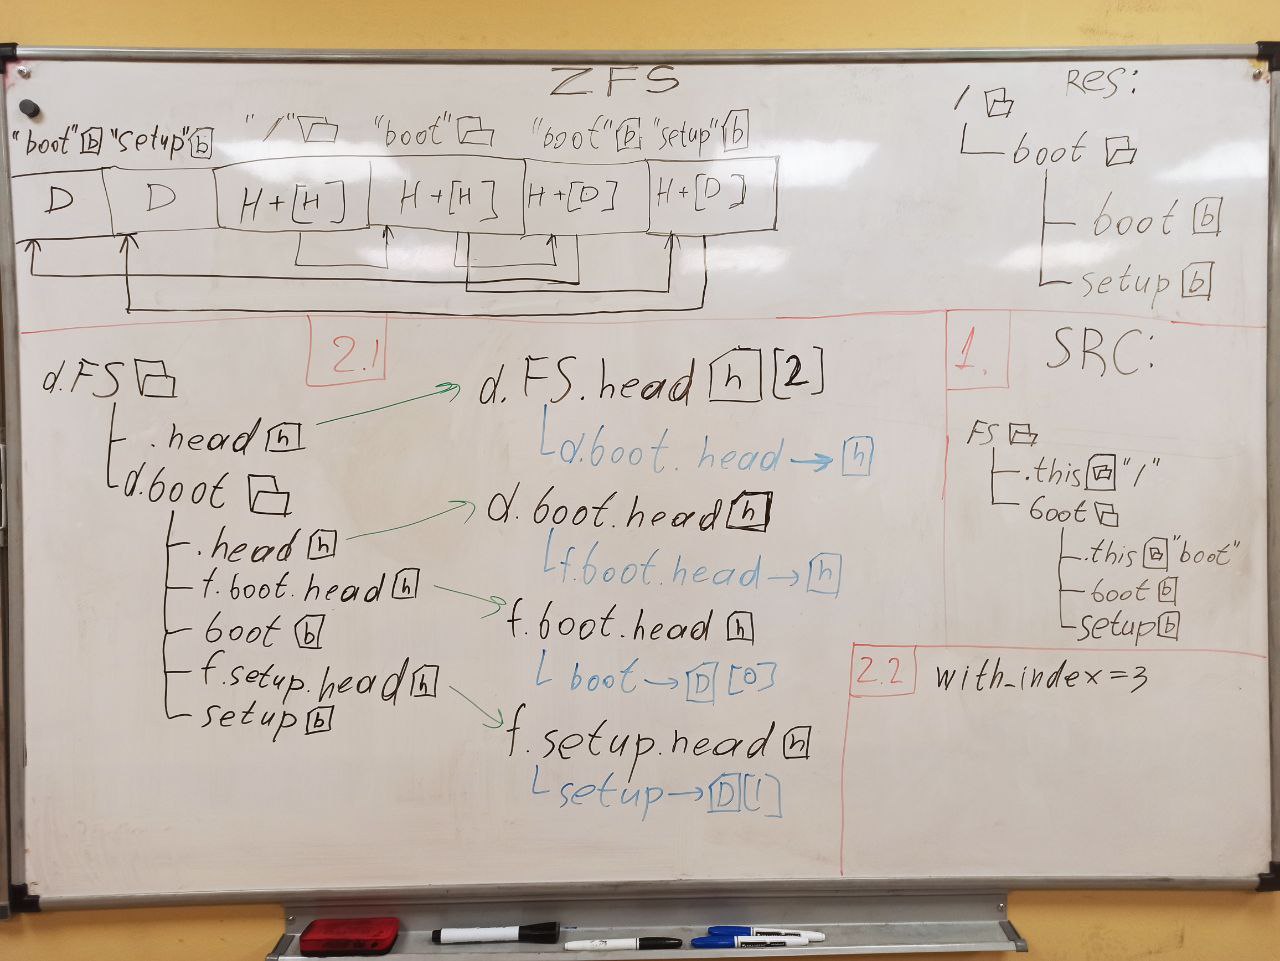 ZFS
"boot" b "setup" b "/" "boot" "boot" b "setup" b
D D H+[H] H+[H] H+[D] H+[D]
Res:
/
boot
boot b
setup b
2.1
d.FS
.head h
d.boot
.head h
f.boot.head h
boot b
f.setup.head h
setup b
d.FS.head h [2]
d.boot.head → h
d.boot.head h
f.boot.head → h
f.boot.head h
boot → D [0]
f.setup.head h
setup → D [1]
1. SRC:
FS
.this "/"
boot
.this "boot"
boot b
setup b
2.2 with_index=3